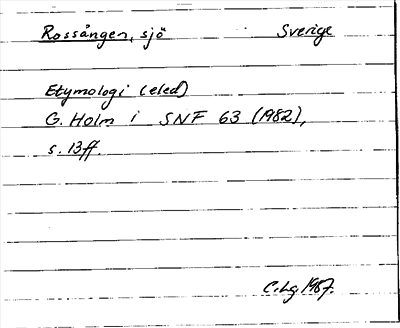 Rossången, sjö Sverige
Etymologi (eled)
G. Holm i SNF 63 (1982),
s. 13ff.
C.Lg 1987.